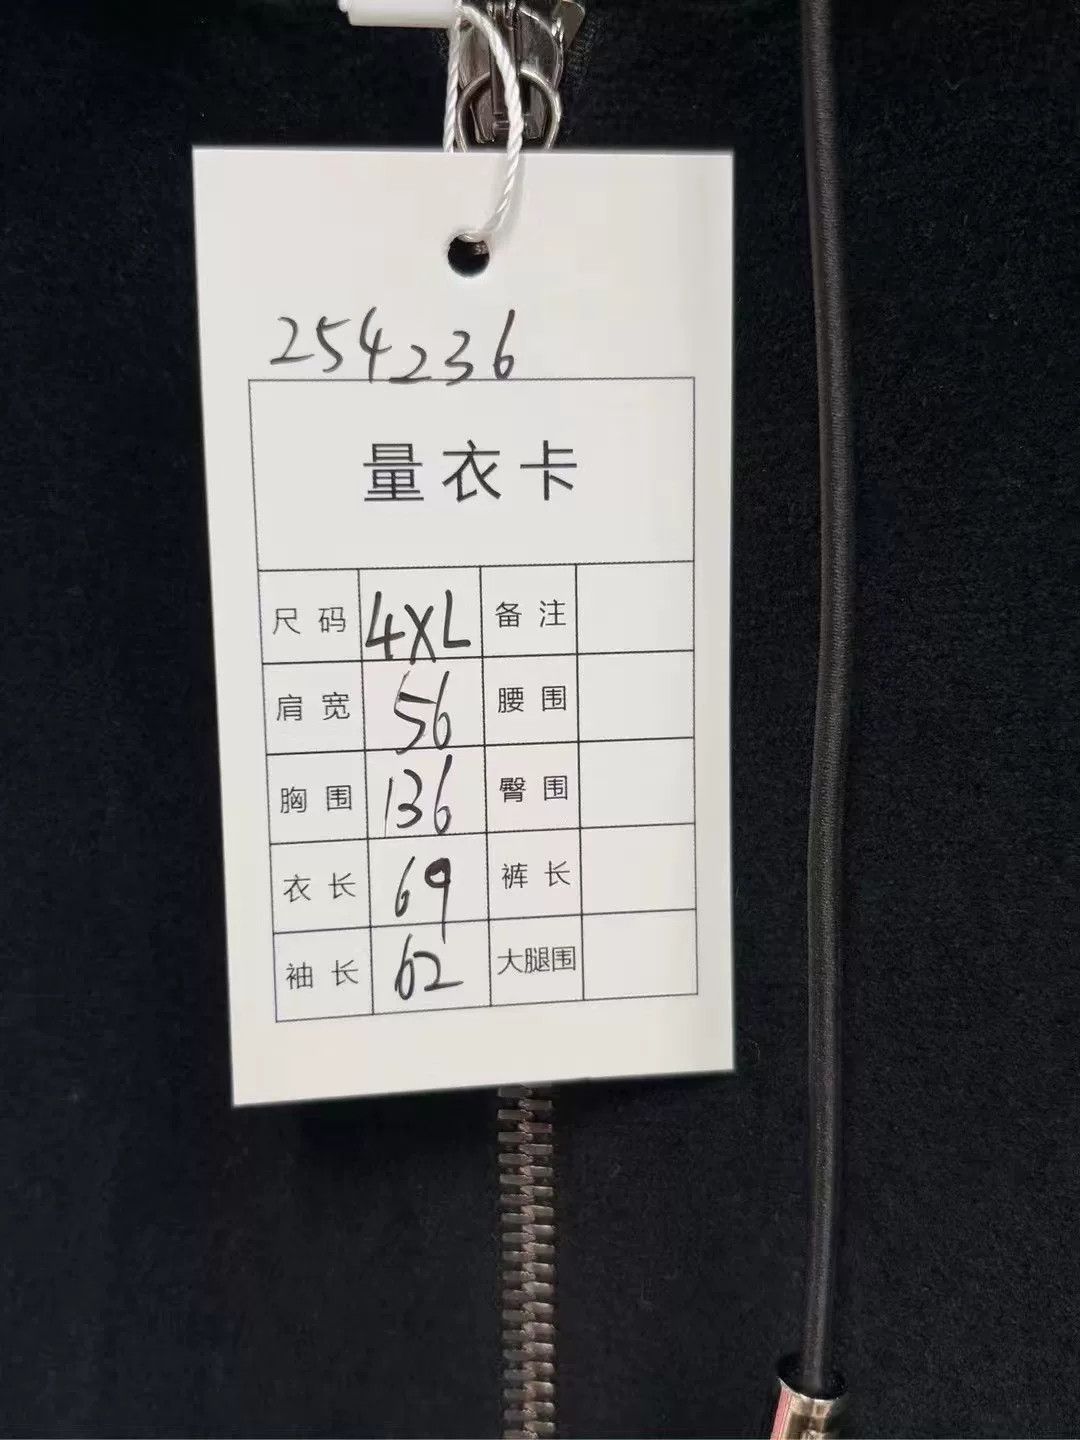 254236
量衣卡
尺码 4XL 备注
肩宽 56 腰围
胸围 136 臀围
衣长 69 裤长
袖长 62 大腿围